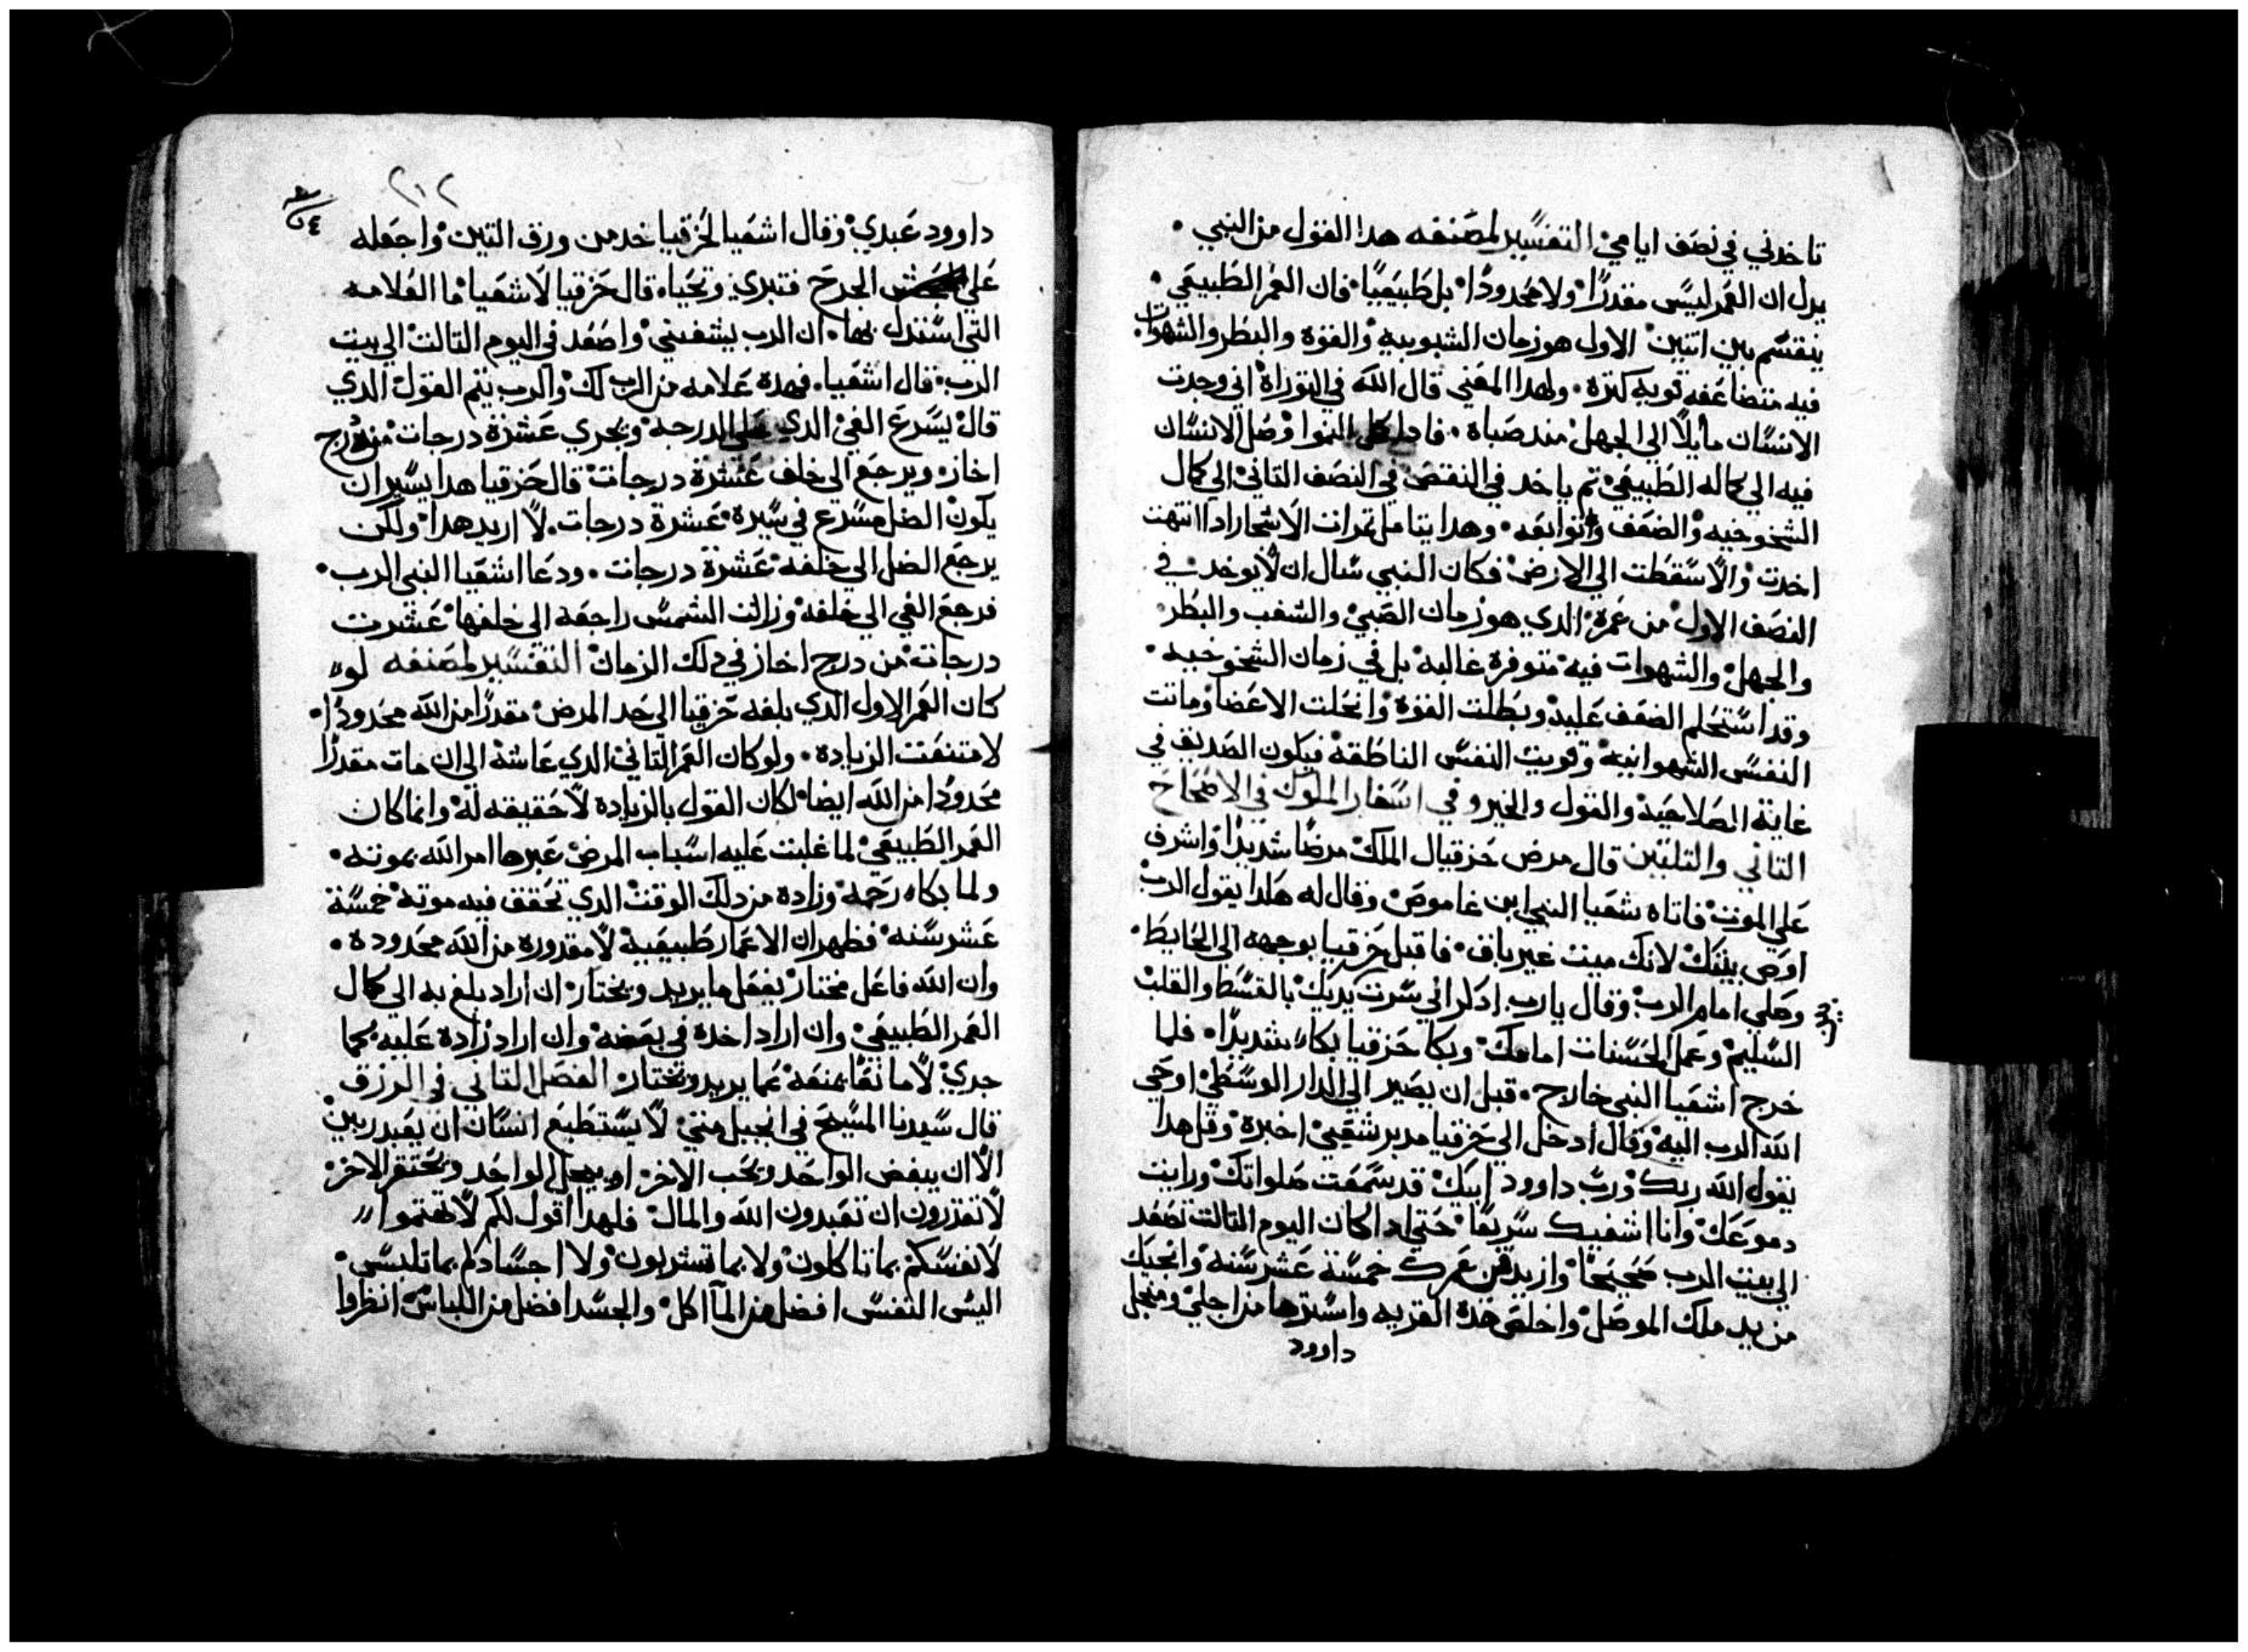 تاخدني في نصف ايامي التفسير لمصنفه هدا القول من النبي
يدل ان العمر ليس مقدرًا ولا محدودًا بل طبيعيًا فان العمر الطبيعي
ينقسم بين اتنين الاول هو زمان الشبوبيه والقوة والبطر والشهوات
فيه متضاعفه قويه كتره ولهدا المعني قال الله في التوراة اني وجدت
الانسان مايلًا الي الجهل مند صباة فادا كمل النموا وصل الانسان
فيه الي كماله الطبيعي تم ياخد في النقص في النصف التاني الي كمال
الشخوخيه والضعف وتوابعه وهدا يتامل تمرات الاشجار ادا انتهت
اخدت والا سقطت الي الارض فكان النبي سال ان لا يوخد في
النصف الاول من عمرة الدي هو زمان الصبي والشغب والبطر
والجهل والشهوات فيه متوفرة غالبه بل في زمان الشخوخيه
وقد استحلم الضعف عليه وبطلت القوة وانحلت الاعضا وماتت
النفس الشهوانيه وقويت النفس الناطقه فيكون الصديق في
غاية الصلاحيه والقول والخير وفي اسفار الملوك في الاصحاح
التاني والتلتين قال مرض حزقيال الملك مرضًا شديدًا واشرف
علي الموت فاتاه شعيا النبي ابن غاموص وقال له هكدا يقول الرب
اوص بيتك لانك ميت غير باق فاقبل حزقيا بوجهه الي الحايط
وصلي امام الرب وقال يارب ادكر اني سرت يديك بالقسط والقلب
السليم وعمل الحسنات امامك وبكا حزقيا بكاء شديدًا فلما
خرج اشعيا النبي خارج قبل ان يصير الي الدار الوسطي اوحي
الله الرب اليه وقال ادخل الي حزقيا مدبر شعبي اخبرة وقل هدا
يقول الله ربك ورب داوود ابيك قد سمعت صلواتك ورايت
دموعك وانا اشفيك سريعًا حتي ادا كان اليوم التالت تصعد
الي بيت الرب صحيحًا وازيد في عمرك خمسة عشر سنه وانجيك
من يد ملك الموصل واخلص هدة القريه واسترها من اجلي ومن اجل
داوود
٢١٢
داوود عبدي وقال اشعيا لحزقيا خد من ورق التين واجعله
علي الجرح فتبري وتحيا قال حزقيا لاشعيا ما العلامه
التي استدل بها ان الرب يشفيني واصعد في اليوم التالت الي بيت
الرب قال اشعيا فهدة علامه من الرب لك والرب يتم القول الدي
قال يسرع الفي الدي علي الدرجه ويجري عشرة درجات من درج
احاز ويرجع الي خلف عشرة درجات قال حزقيا هدا يسير ان
يكون الضل مسرع في سيرة عشرة درجات لا اريد هدا ولكن
يرجع الضل الي خلفه عشرة درجات ودعا اشعيا النبي الرب
فرجع الفي الي خلفه وزالت الشمس راجعه الي خلفها عشرت
درجات من درج احاز في دلك الزمان التفسير لمصنفه لو
كان العمر الاول الدي بلغه حزقيا الي حد المرض مقدرًا من الله محدودًا
لامتنعت الزيادة ولو كان العمر التاني الدي عاشه الي ان مات مقدرًا
محدودًا من الله ايضا لكان القول بالزيادة لا حقيقه له وانما كان
العمر الطبيعي لما غلبت عليه اسباب المرض غبرها امر الله بموته
ولما بكاء رحمه وزاده من دلك الوقت الدي تحقق فيه موته خمسة
عشر سنه فظهر ان الاعمار طبيعية لا مقدوره من الله محدودة
وان الله فاعل مختار يفعل ما يريد ويختار ان اراد بلغ به الي كمال
العمر الطبيعي وان اراد اخدة في بعضه وان اراد زادة عليه كما
جري لا مانعًا يمنعه عما يريد ويختار الفصل التاني في الرزق
قال سيدنا المسيح في انجيل متي لا يستطيع انسان ان يعبد ربين
الا ان يبغض الواحد ويحب الاخر او يجل الواحد ويحتقر الاخر
لا تقدرون ان تعبدون الله والمال فلهدا اقول لكم لا تهتموا
لانفسكم بما تاكلون ولا بما تشربون ولا اجسادكم بما تلبس
اليس النفس افضل من الماكل والجسد افضل من اللباس انظروا